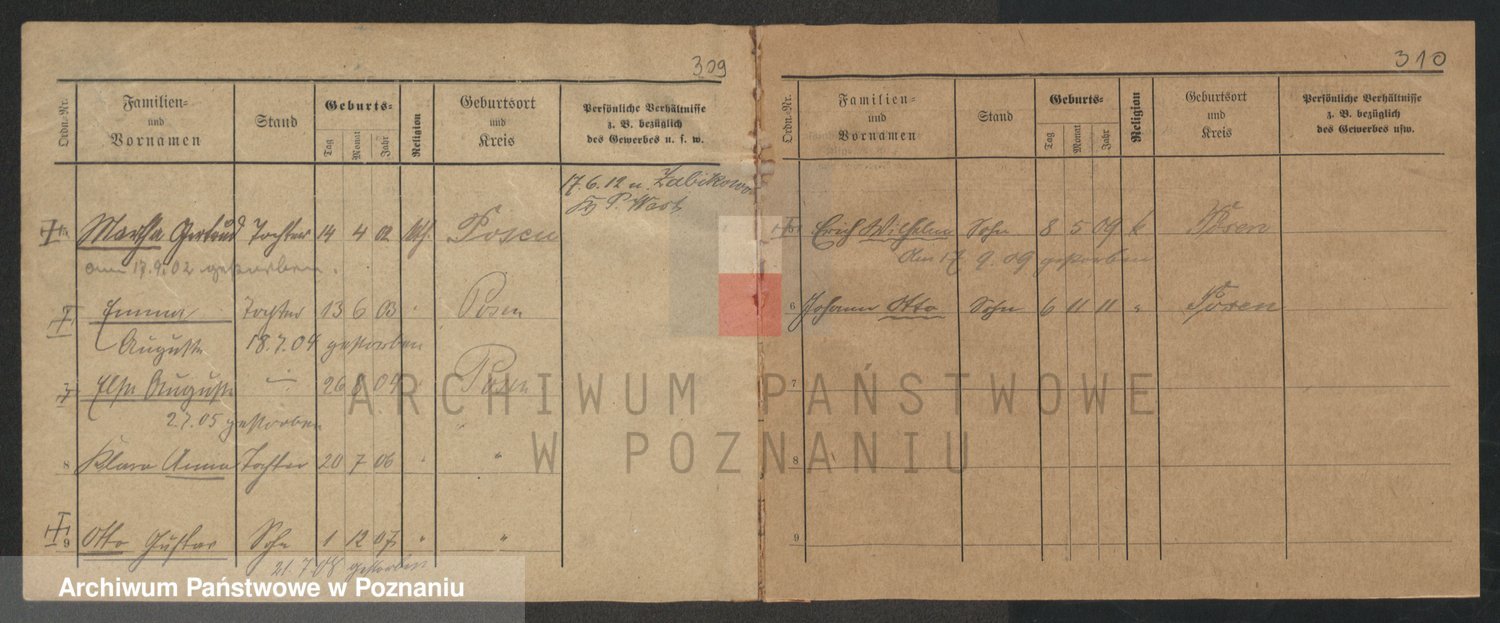 309
Ordn.-Nr.
Familien-
und
Vornamen
Stand
Geburts-
Tag
Monat
Jahr
Religion
Geburtsort
und
Kreis
Persönliche Verhältnisse
z. B. bezüglich
des Gewerbes u. s. w.
17.6.12 n. Zabikowo
P. West
Martha Gertrud Tochter 14 4 02 Posen
am 17.9.02 gestorben.
Emma Tochter 13 6 03 Posen
Auguste 18.7.04 gestorben
Else Auguste 26 8 04 Posen
2.7.05 gestorben
8 Klara Anna Tochter 20 7 06 "
9 Otto Gustav Sohn 1 12 07 " "
21.7.08 gestorben
310
Ordn.-Nr.
Familien-
und
Vornamen
Stand
Geburts-
Tag
Monat
Jahr
Religion
Geburtsort
und
Kreis
Persönliche Verhältnisse
z. B. bezüglich
des Gewerbes usw.
Erich Wilhelm Sohn 8 5 09 k Posen
am 17. 9. 09 gestorben
6 Johann Otto Sohn 6 11 11 " Posen
7
8
9
ARCHIWUM PAŃSTWOWE
W POZNANIU
Archiwum Państwowe w Poznaniu